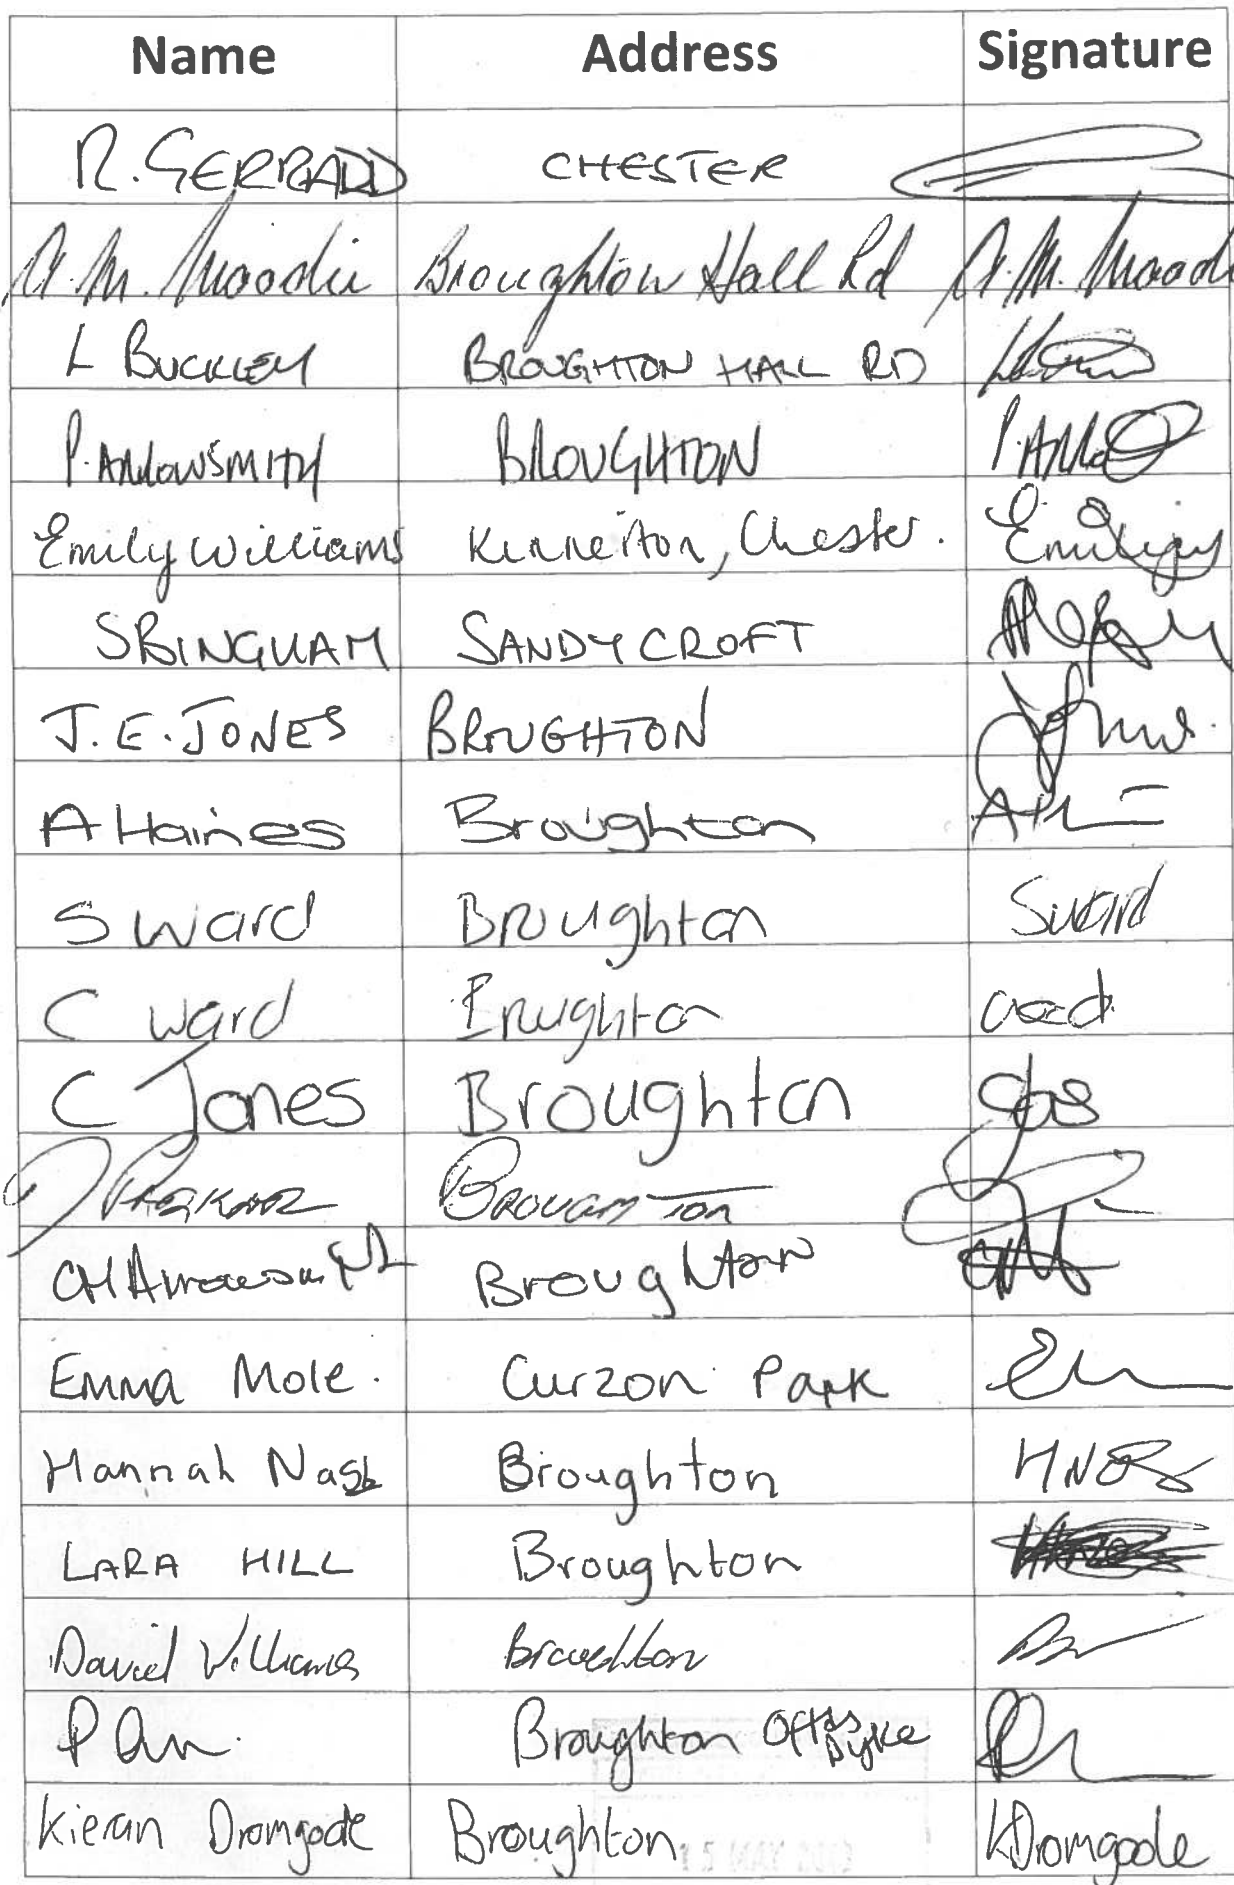 Name Address Signature
R. GERRARD CHESTER
A. M. Moodie Broughton Hall Rd A. M. Moodie
L BUCKLEY BROUGHTON HALL RD
P. ARROWSMITH BROUGHTON P. ARR
Emily Williams Kinnerton, Chester. Emily
S BINGHAM SANDYCROFT
J. E. JONES BROUGHTON Jones.
A Haines Broughton
S Ward Broughton S Ward
C Ward Broughton
C Jones Broughton
PARKER BROUGHTON
CH Arrowsmith Broughton
Emma Mole. Curzon Park
Hannah Nash Broughton HNash
LARA HILL Broughton
David Williams Broughton
P Broughton Offas Dyke
Kieran Dromgoole Broughton K Dromgoole